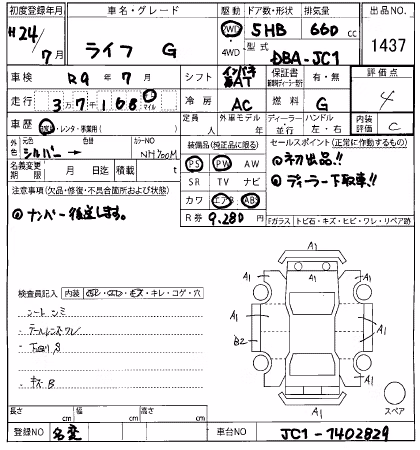 初度登録年月 車名・グレード 駆動 ドア数・形状 排気量 出品NO.
H24/7月 ライフ G 2WD 4WD 5HB 660 cc 1437
型式 DBA-JC1
車検 R9年7月 シフト インパネAT 保証書 有・無 評価点 4
走行 3万7千168 マイル 冷房 AC 燃料 G
車歴 自家用・レンタ・事業用( ) 定員 人 外車モデル 年 ディーラー 並行 ハンドル 左・右 内装評価 C
外色 元色 シルバー → 色替 カラーNO NH700M 装備品(純正品に限る) セールスポイント(正常に作動するもの)
名義変更期限 月 日迄 積載 t PS PW AW ◎ネタ出品!!
注意事項(欠品・修復・不具合箇所および状態) SR TV ナビ ◎ディーラー下取車!!
◎ナンバー後送します。 カワ エアB ABS
R券 9.280円 Fガラス トビ石・キズ・ヒビ・ワレ・リペア跡
A1
A1 A1
検査員記入 内装 キレ・コゲ・穴
シートシミ
テールレンズワレ
下回りS
キズB
B2 A1
A1
A1 A1
A1
スペア
長さ cm 幅 cm 高さ cm
登録NO 名変 車台NO JC1-1402829